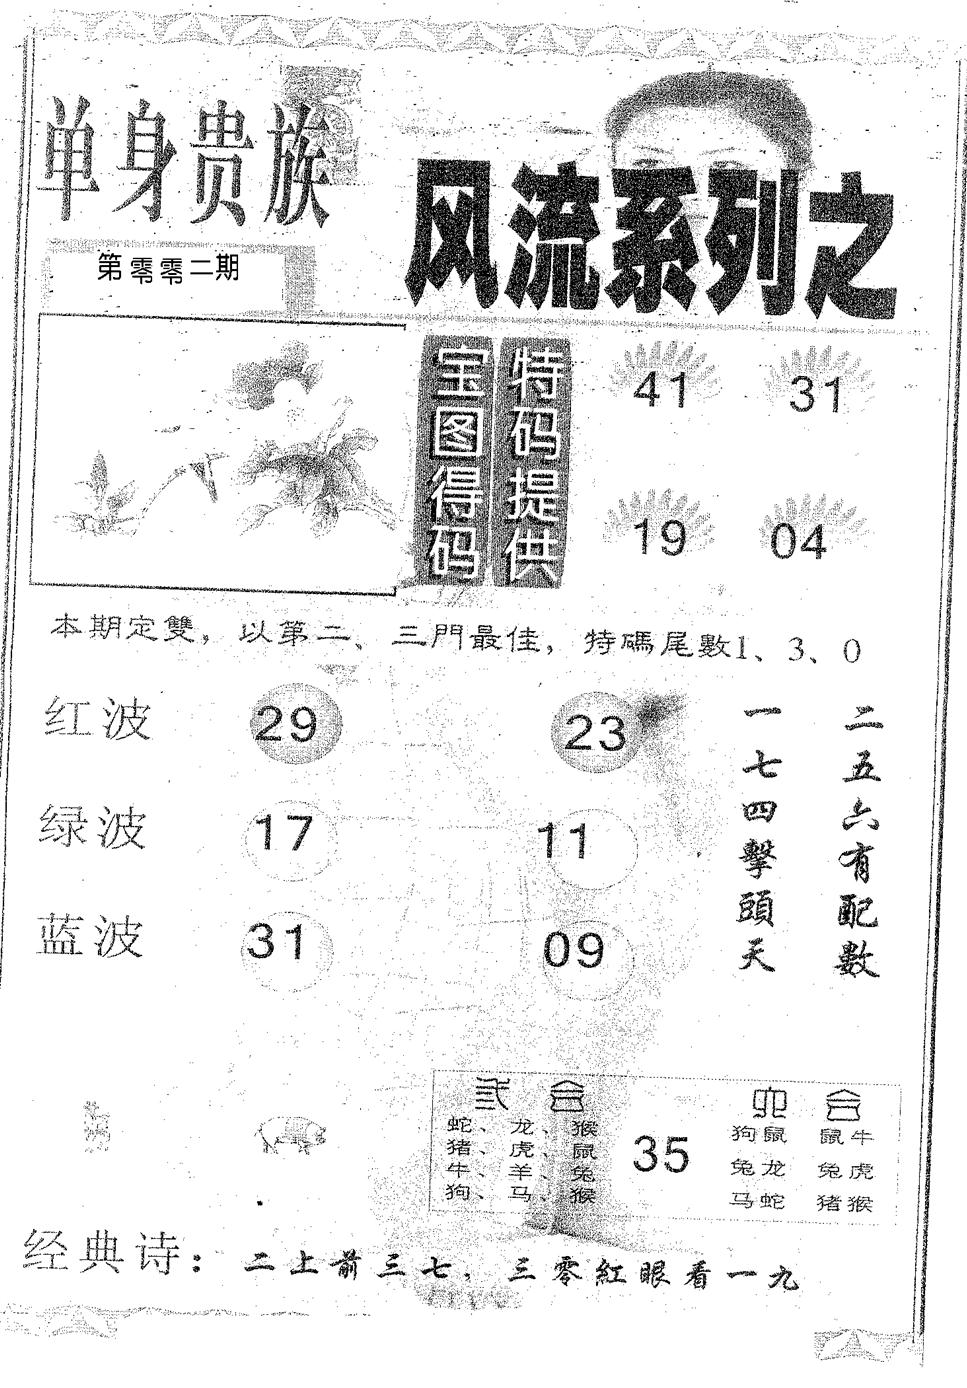 单身贵族
风流系列之
第零零二期
特码提供
宝图得码
41 31
19 04
本期定雙，以第二、三門最佳，特碼尾數1、3、0
红波 29 23
绿波 17 11
蓝波 31 09
二五六有配數
一七四擊頭天
弎合
蛇、龙、猴
猪、虎、鼠
牛、羊、兔
狗、马、猴
35
六合
狗鼠 鼠牛
兔龙 兔虎
马蛇 猪猴
经典诗：二上前三七，三零紅眼看一九